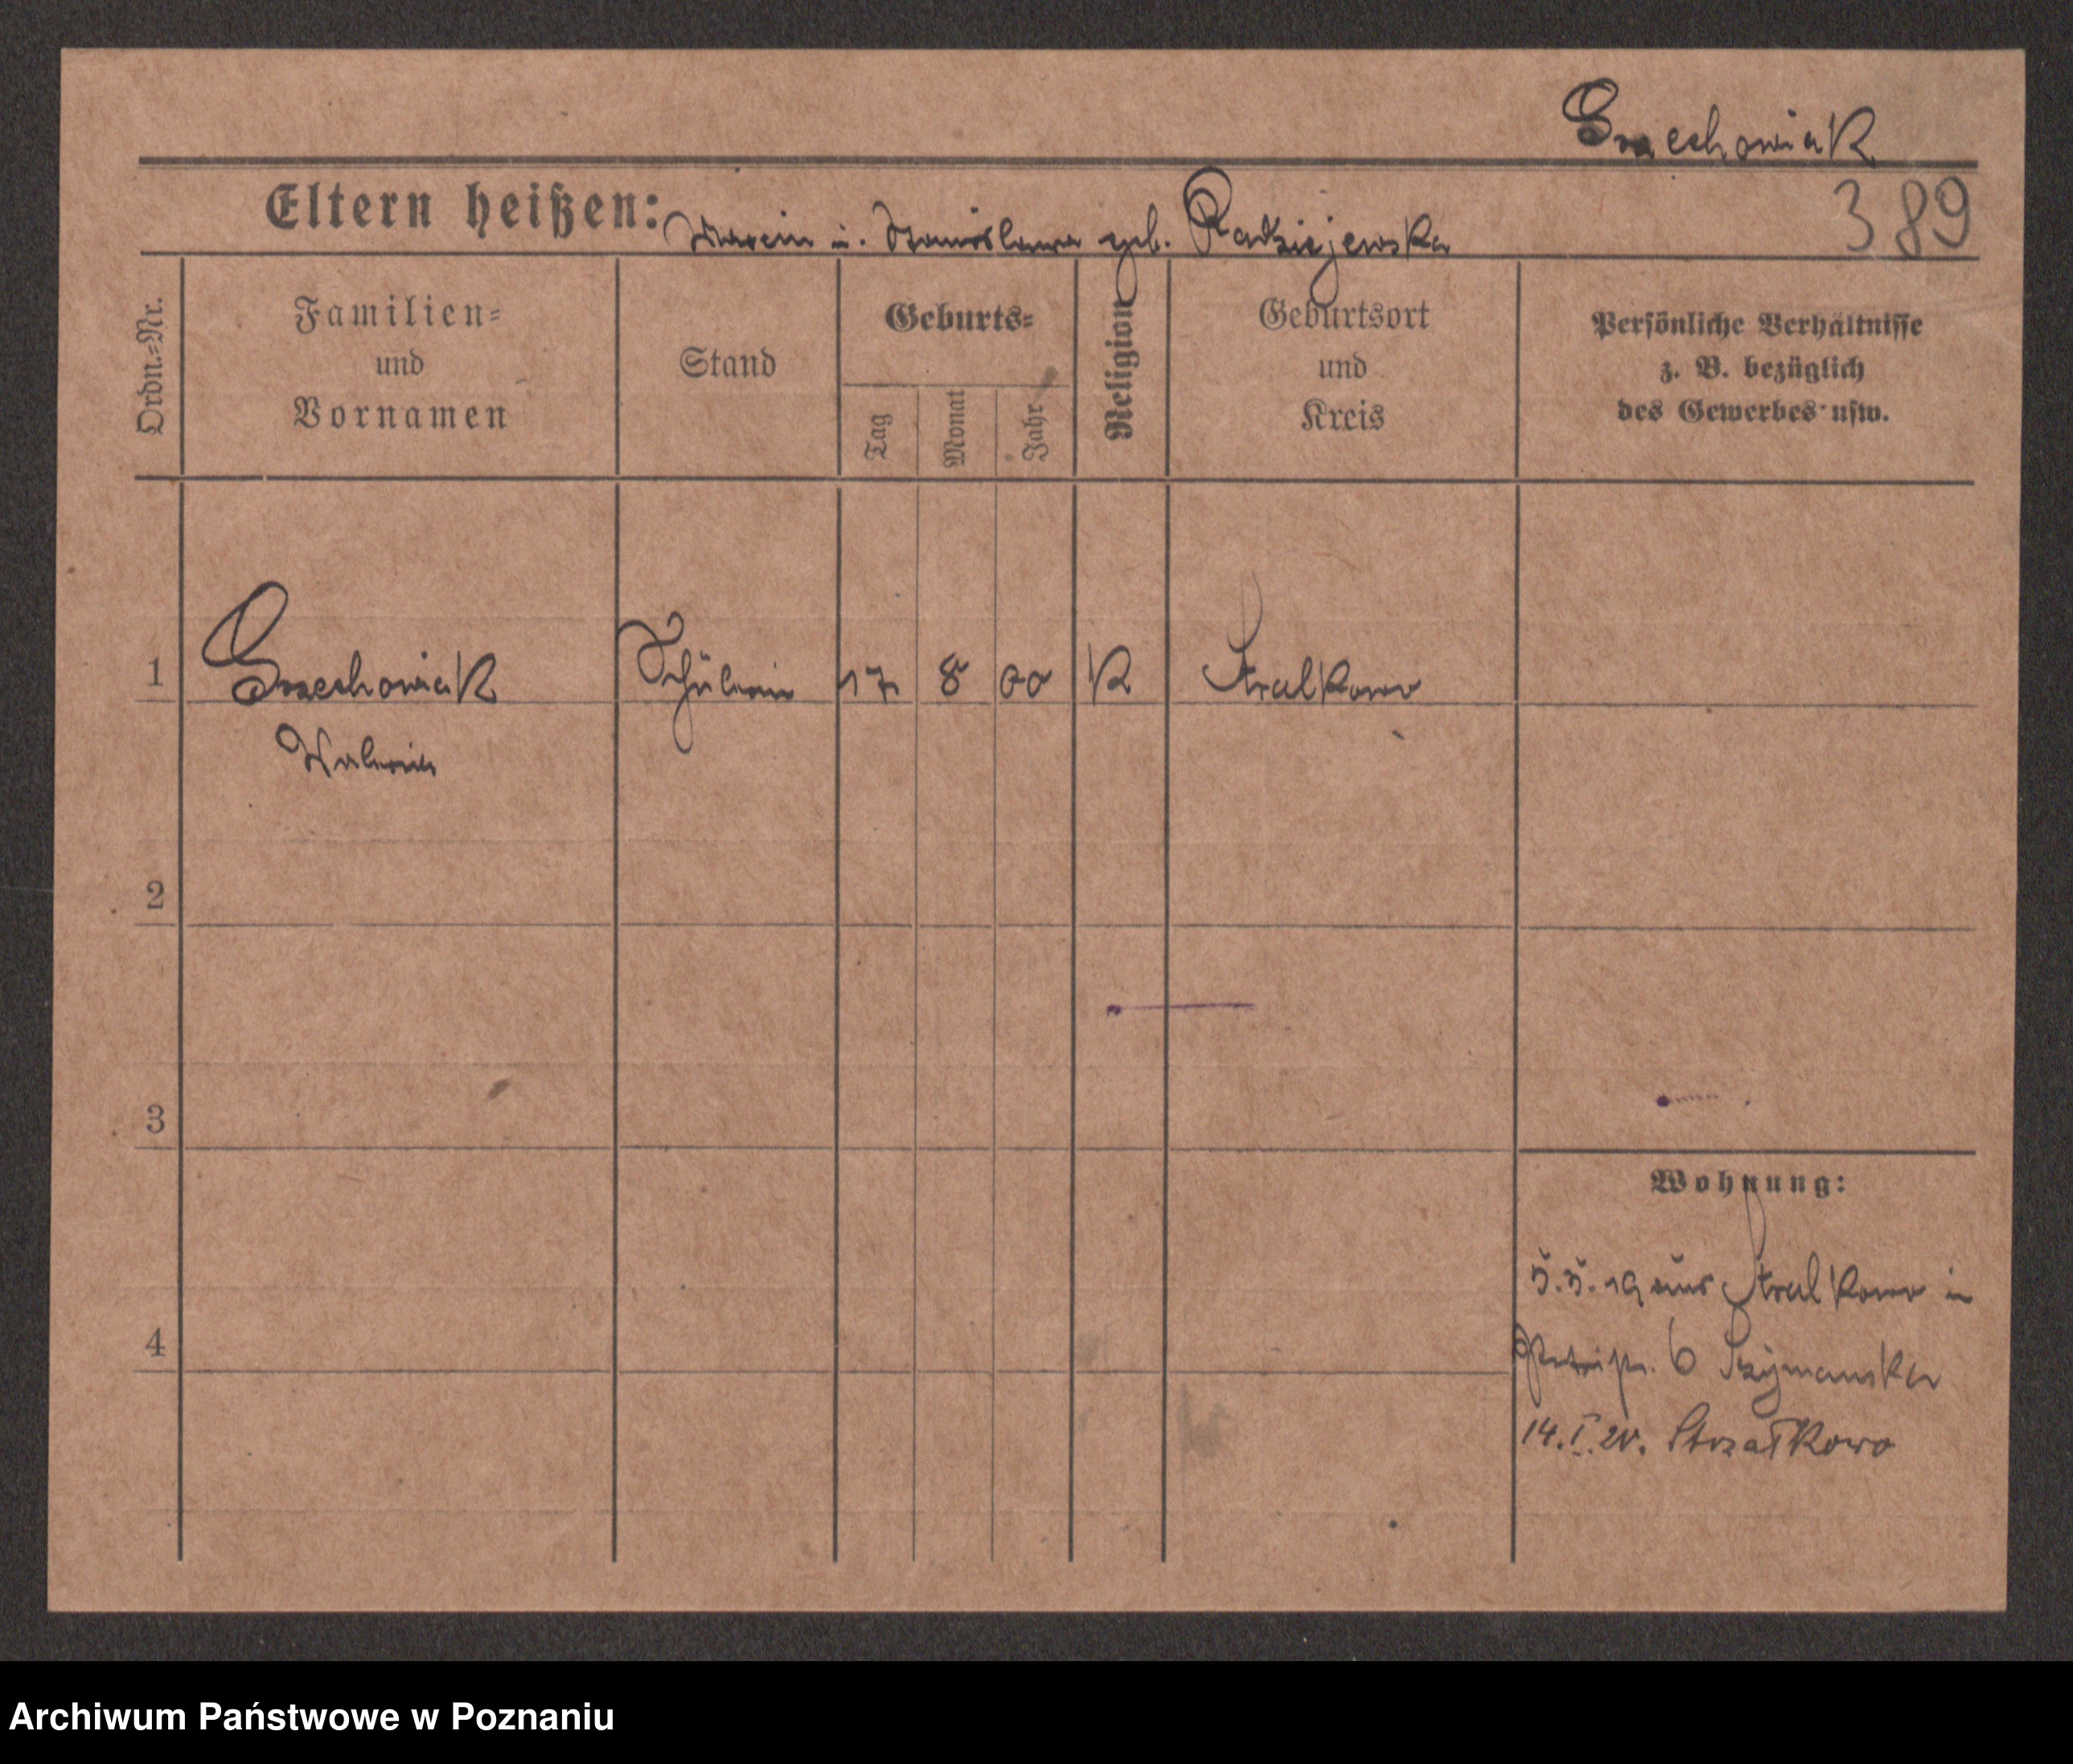 Grzechowiak
Eltern heißen: Marcin u. Stanislawa geb. Radziejewska
389
Ordn.=Nr.
Familien=
und
Vornamen
Stand
Geburts=
Tag
Monat
Jahr
Religion
Geburtsort
und
Kreis
Persönliche Verhältnisse
z. B. bezüglich
des Gewerbes usw.
1 Grzechowiak Schülerin 17 8 00 K Stralkowo
Waleria
2
3
4
Wohnung:
5.5.19 aus Stralkowo in
Petristr. 6 Szymanska
14.I.20. Strzałkowo
Archiwum Państwowe w Poznaniu